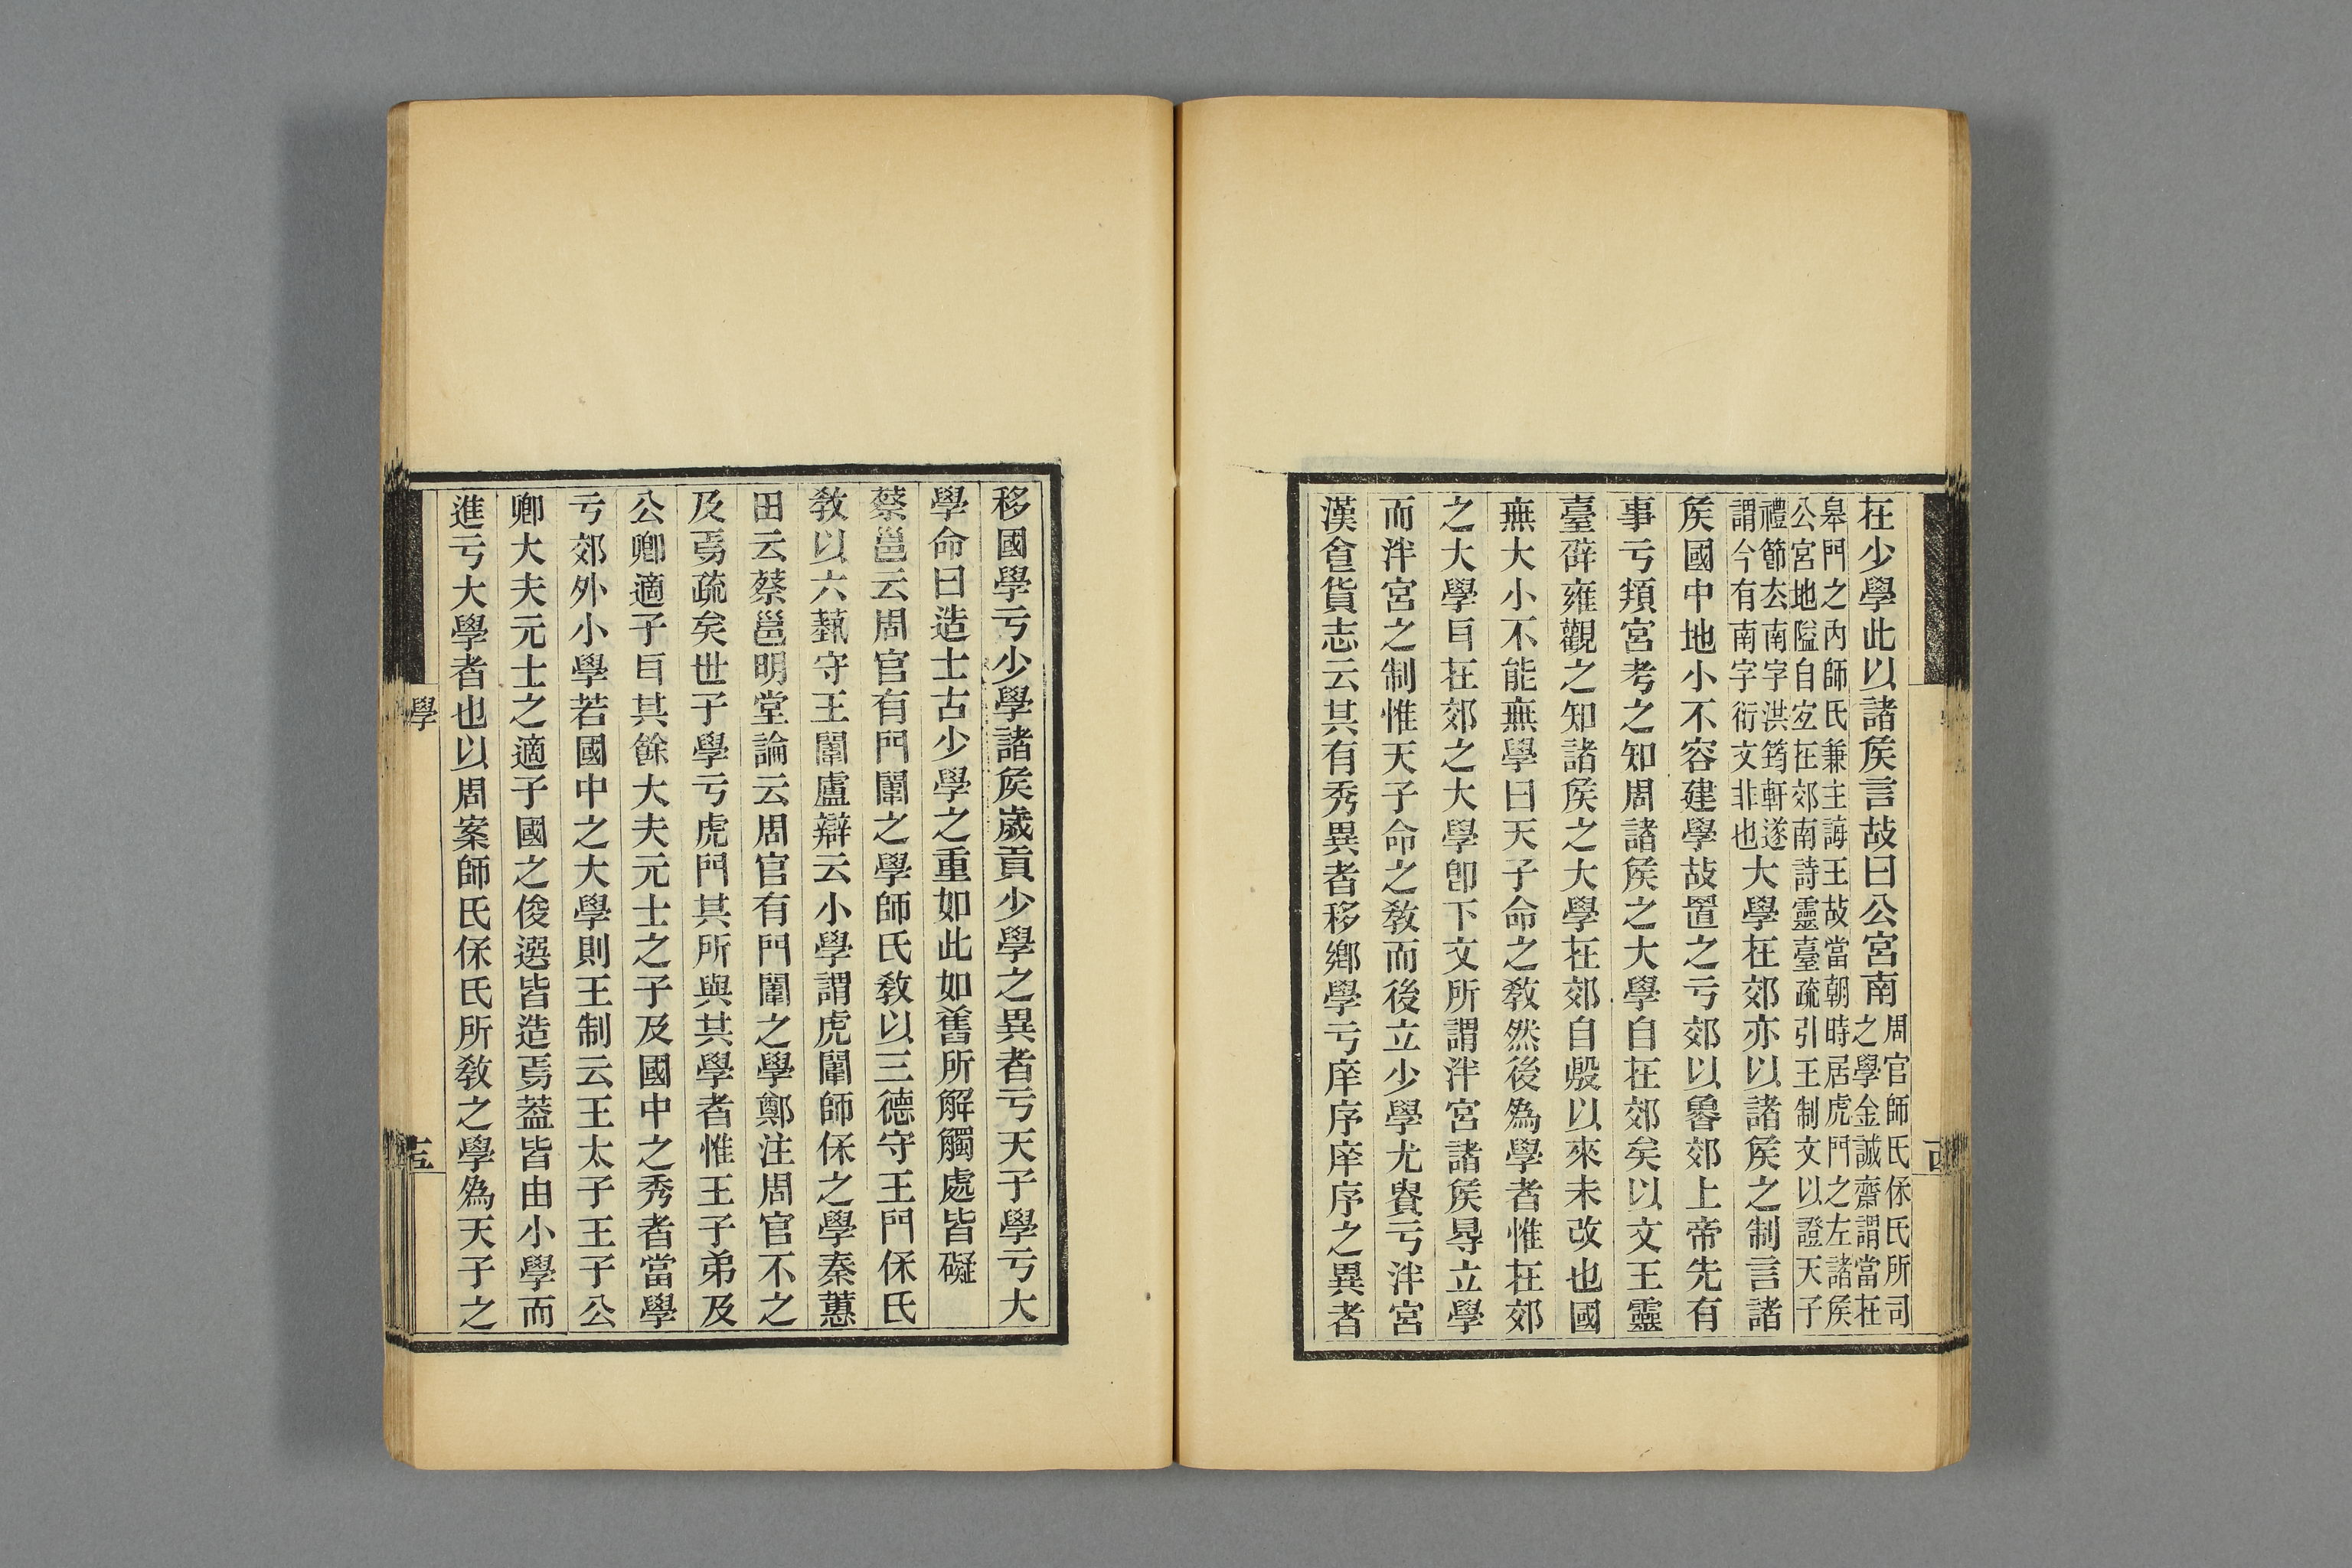 在少學此以諸矦言故曰公宮南周官師氏保氏所司
之學金誠齋謂當在
皋門之內師氏兼主誨王故當朝時居虎門之左諸矦
公宮地隘自宜在郊南詩靈臺疏引王制文以證天子
禮節去南字洪筠軒遂
謂今有南字衍文非也大學在郊亦以諸矦之制言諸
矦國中地小不容建學故置之亏郊以魯郊上帝先有
事亏頖宮考之知周諸矦之大學自在郊矣以文王靈
臺辟雍觀之知諸矦之大學在郊自殷以來未改也國
無大小不能無學曰天子命之敎然後爲學者惟在郊
之大學㠯在郊之大學卽下文所謂泮宮諸矦㝵立學
而泮宮之制惟天子命之敎而後立少學尤貴亏泮宮
漢食貨志云其有秀異者移鄉學亏庠序庠序之異者
移國學亏少學諸矦歲貢少學之異者亏天子學亏大
學命曰造士古少學之重如此如舊所解觸處皆礙
蔡邕云周官有門闈之學師氏敎以三德守王門保氏
敎以六藝守王闈盧辯云小學謂虎闈師保之學秦蕙
田云蔡邕明堂論云周官有門闈之學鄭注周官不之
及焉疏矣世子學亏虎門其所與其學者惟王子弟及
公卿適子㠯其餘大夫元士之子及國中之秀者當學
亏郊外小學若國中之大學則王制云王太子王子公
卿大夫元士之適子國之俊選皆造焉葢皆由小學而
進亏大學者也以周案師氏保氏所敎之學爲天子之
學